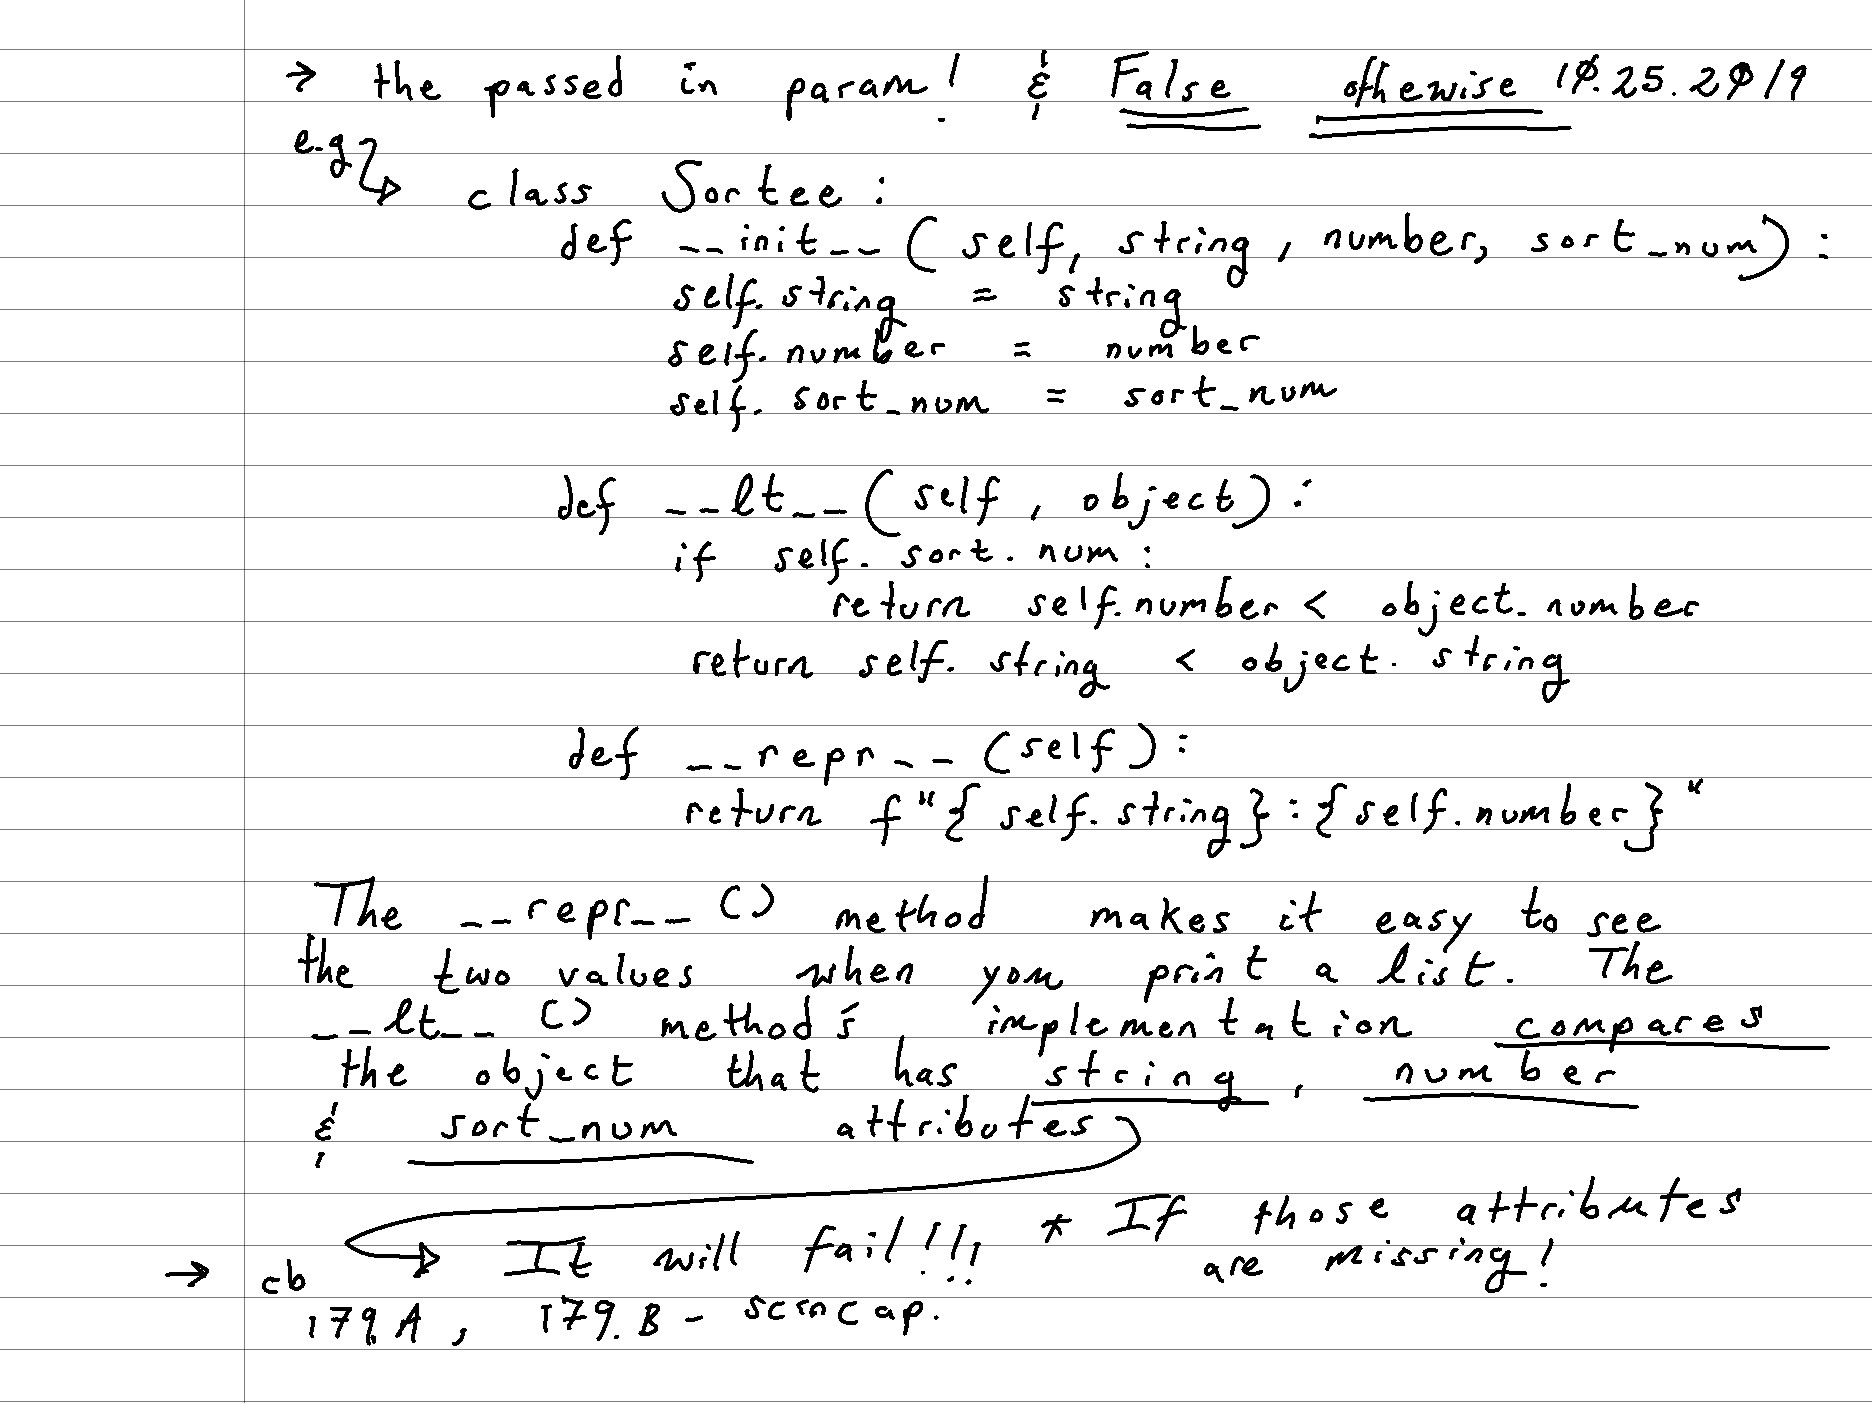 → the passed in param! & False othewise 10.25.2019
e.g
class Sortee:
def __init__(self, string, number, sort_num):
self.string = string
self.number = number
self.sort_num = sort_num
def __lt__(self, object):
if self.sort.num:
return self.number < object.number
return self.string < object.string
def __repr__(self):
return f"{self.string}:{self.number}"
The __repr__() method makes it easy to see
the two values when you print a list. The
__lt__() method's implementation compares
the object that has string, number
& sort_num attributes
It will fail!!! * If those attributes
are missing!
→ cb
179.A, 179.B - scrncap.